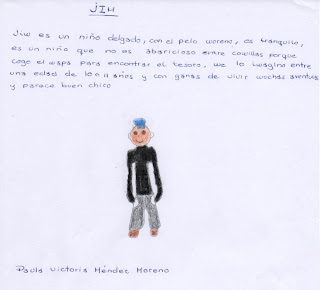 JIM
Jim es un niño delgado, con el pelo moreno, es tranquilo,
es un niño que no es abaricioso entre comillas porque
coge el mapa para encontrar el tesoro, me lo imagino entre
una edad de 10 o 11 años y con ganas de vivir muchas aventuras
y parece buen chico
Paula Victoria Méndez Moreno